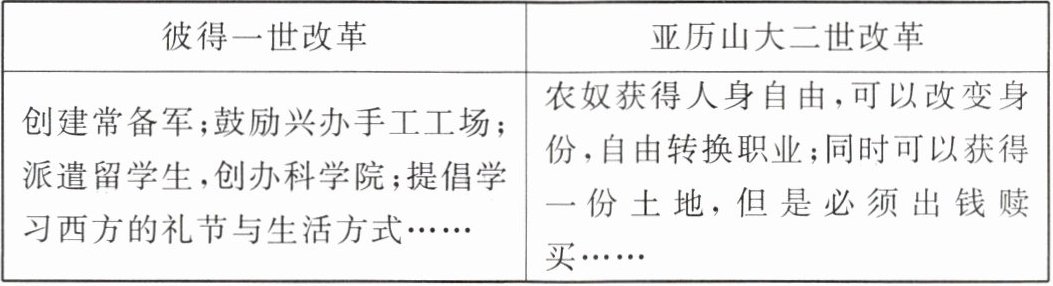 彼得一世改革
亚历山大二世改革
创建常备军;鼓励兴办手工工场;
派遣留学生,创办科学院;提倡学
习西方的礼节与生活方式……
农奴获得人身自由,可以改变身
份,自由转换职业;同时可以获得
一份土地,但是必须出钱赎
买……